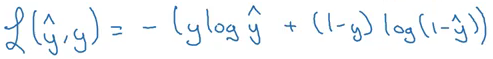 ℒ(ŷ, y) = - (y log ŷ + (1-y) log(1-ŷ))